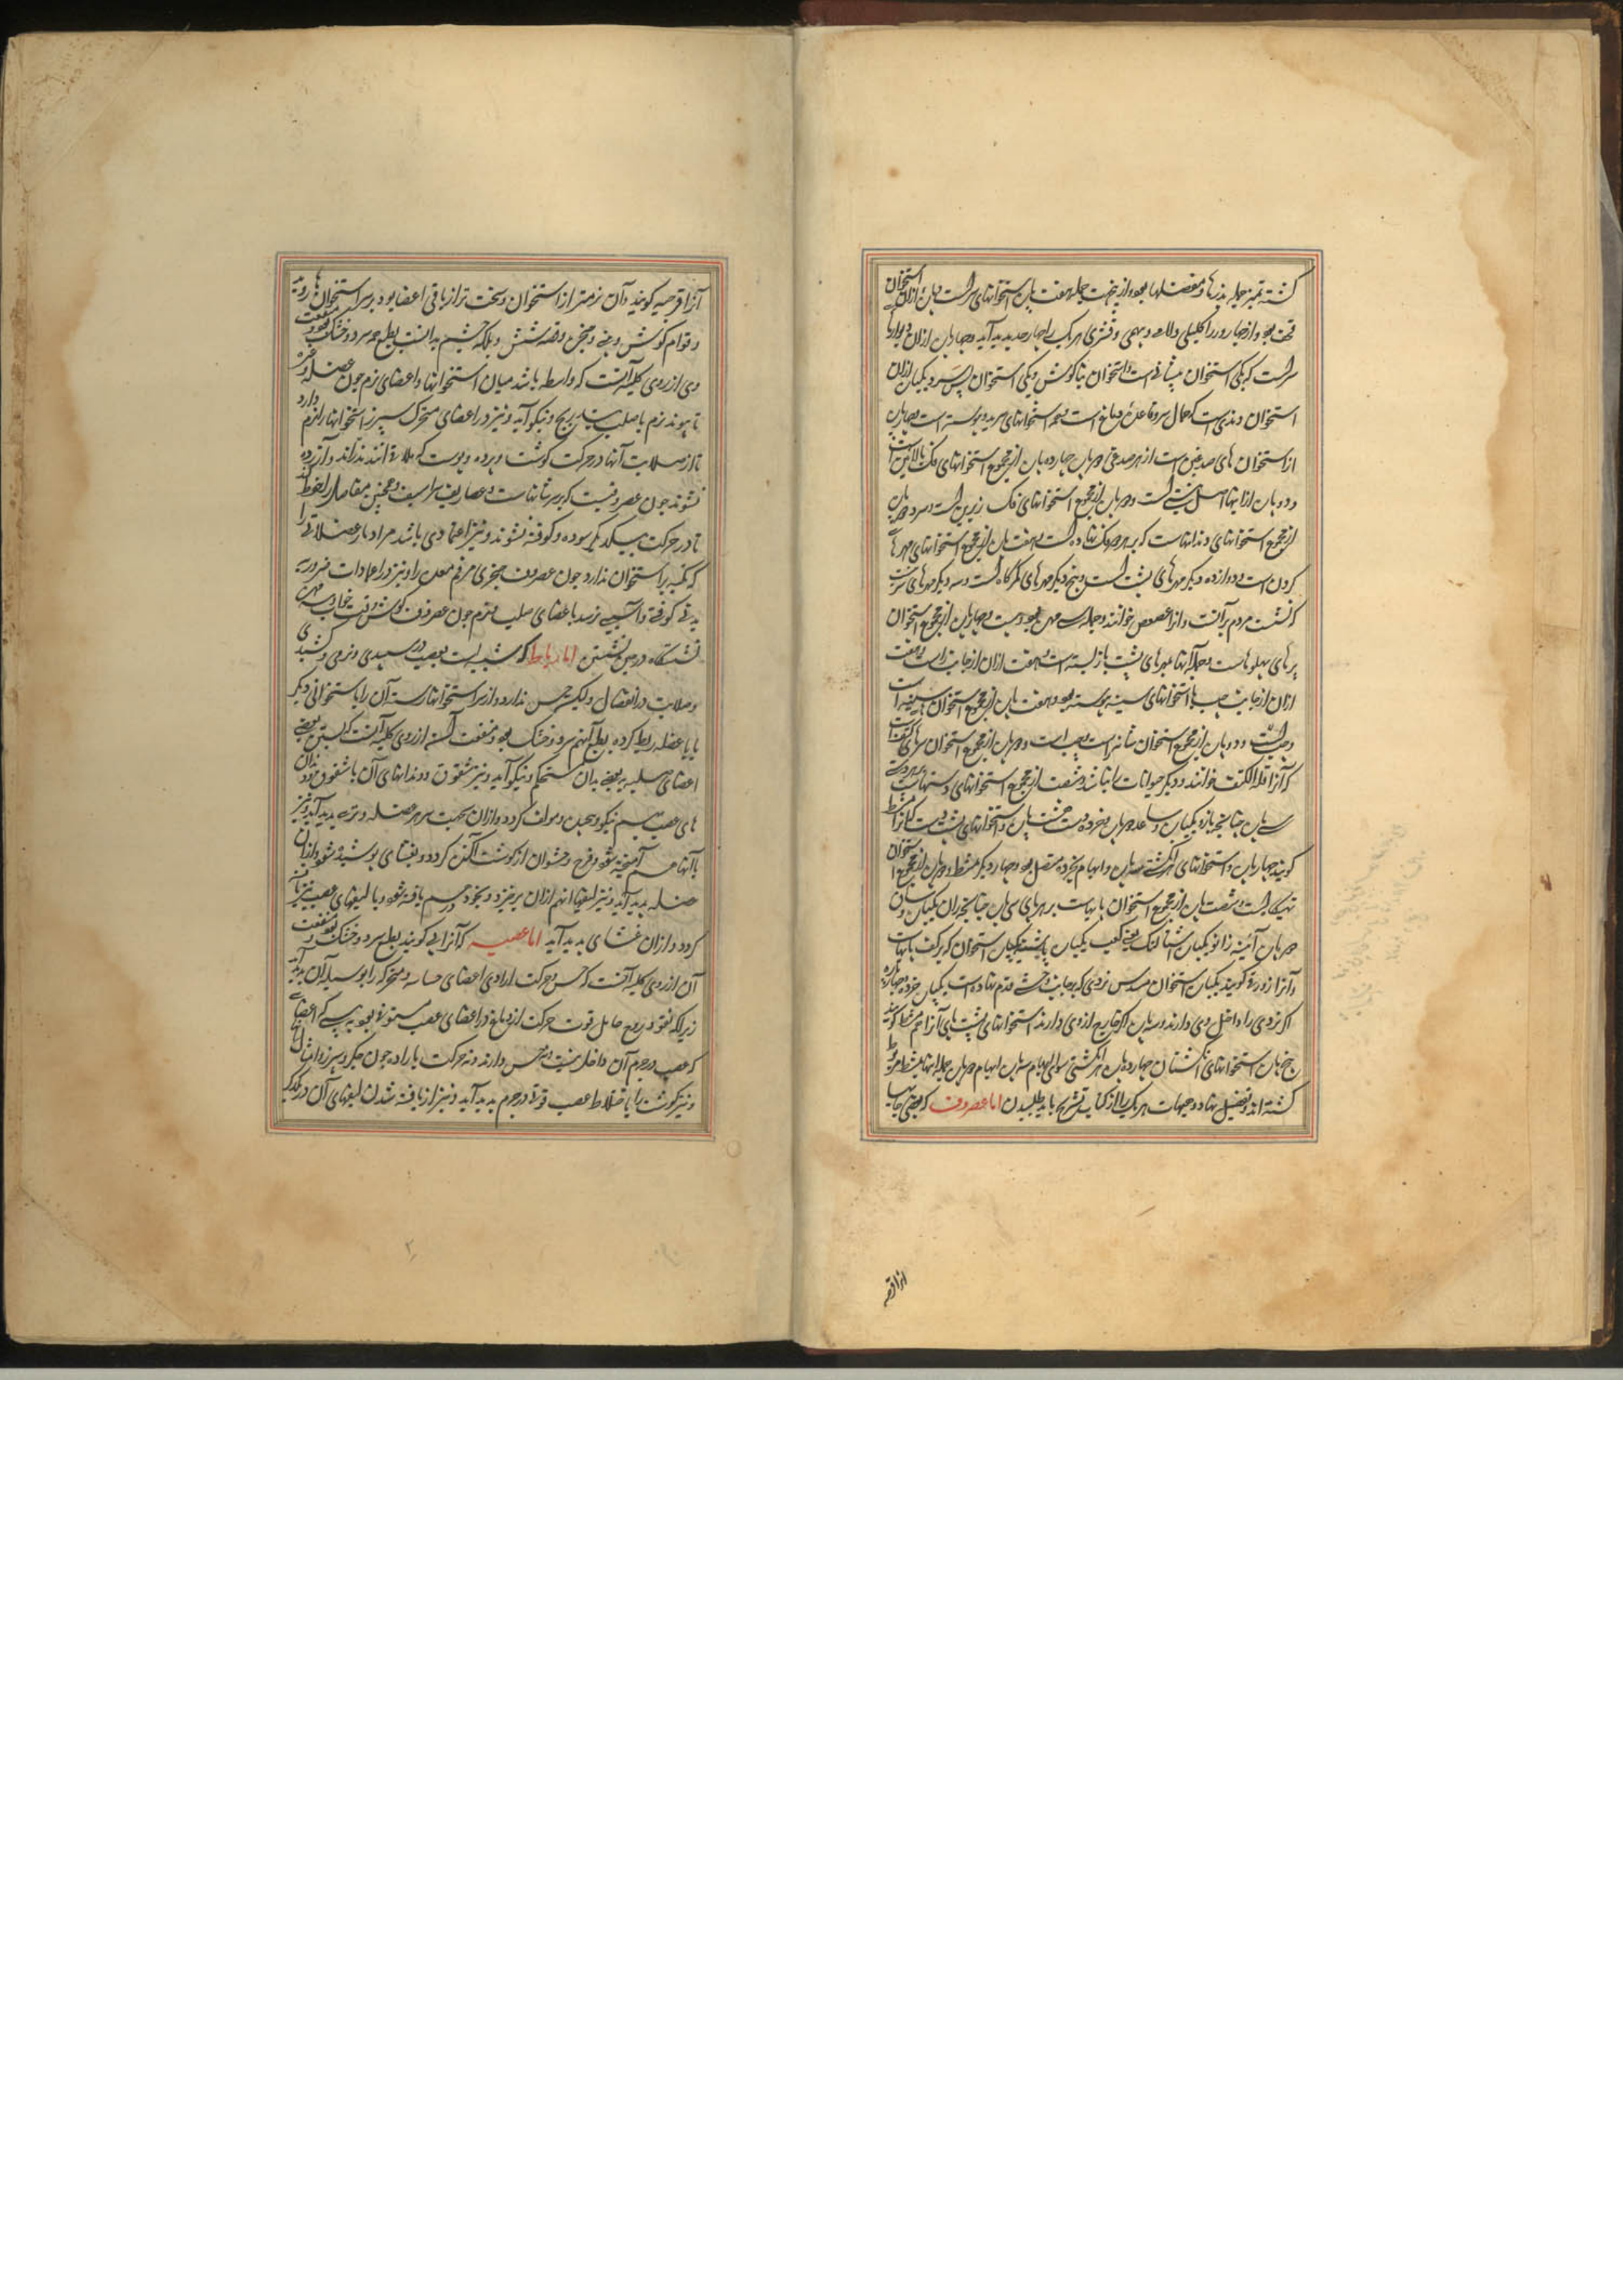 کشته تمیز جمله بدنها و مفصلها بود و ازین جهت جمله هفت پاره استخوانهای سر است دو پاره ازان استخوان
قحف بود و از چهار روز اکلیلی و لامی و سهمی و قشری هر یک را چهار حد پدید آید و چهار پاره ازان دیوارها
سر است که یکی استخوان پیشانی است و استخوان بناکوش و یکی استخوان پس سر و یکپاره ازان
استخوان وتدی است که حمال سر و قاعده دماغ است و همه استخوانهای سر بدو پیوسته است و چهار پاره
از استخوان های صدغین است از هر صدغی دو پاره چهارده پاره از مجموع استخوانهای فک بالائین است
و دو پاره از اینها اصل بینی است و دو پاره از مجموع استخوانهای فک زیرین است و سی و دو پاره
از مجموع استخوانهای دندانهاست که بر هر دو فک نهاده است و هفت پاره از مجموع استخوانهای مهرها
کردن است و دوازده دیگر مهرهای پشت است و پنج دیگر مهرهای کمرکاه است و سه دیگر مهرهای سرین است
که نشست مردم بر آنست و از عصعص خوانند و جمله سی مهره بود و بیست و چهار پاره از مجموع استخوان
برهای پهلوهاست و جمله آنها بمهرهای پشت باز بسته است و هفت ازان از جانب راست و هفت
ازان از جانب چپ با استخوانهای سینه پیوسته بود و هفت پاره از مجموع استخوانهای سینه است
و دو پاره از مجموع استخوان شانه راست و چپ است و دو پاره از مجموع استخوان سرهای کتف است
که آنرا قلة الکتف خوانند و دیگر حیوانات را نباشد و شصت از مجموع استخوانهای دستهاست بهر دستی
سی پاره چنانچه بازو یکپاره و ساعد دو پاره و خرده دست هشت پاره و استخوانهای پشت دست که آنرا مشط
کویند چهار پاره و استخوانهای انکشت سه پاره و ابهام بخرده متصل بود و چهار دیکر بمشط و دو پاره از مجموع استخوان
تهیکاه است و شصت پاره از مجموع استخوان پایهاست بر هر پای سی پاره چنانچه ران یکپاره و ساق
دو پاره آئینه زانو یکپاره شتالنک یعنی کعب یکپاره پاشنه یکپاره استخوان که بر کف پا نهاست
و آنرا زورقی کویند یکپاره استخوان مسدس نردی که بجانب وحشی قدم نهاده است یکپاره خرده چهار پاره
اکر نردی را داخل وی دارند و سه پاره اکر خارج از وی دارند استخوانهای پشت پای آنرا هم مشط کویند
پنج پاره استخوانهای انکشتان چهارده پاره هر انکشتی سوای ابهام سه پاره ابهام دو پاره جمله اینها بمشط مربوط
کشته اند و تفصیل نهاد و هیئات هر یک را از کتاب تشریح باید طلبیدن اما غضروف که بعضی جاها
ازاقرصه
آنرا قرصیه کویند و آن نرمتر از استخوان و سخت تر از باقی اعضا بود و بر سر استخوانها روید
و قوام کوش و بینی و حنجره و قصبه شش و پلک چشم بدانست بطبع هم سرد و خشک بود و منفعت
وی از روی کلیه آنست که واسطه باشد میان استخوانها و اعضای نرم چون عضله و غیره
تا پیوند نرم با صلب بتدریج و نیکو آید و نیز در اعضای متحرک سپر استخوانها را نرم دارد
تا از صلابت آنها در حرکت کوشت و پرده و پوست که ملاقی آنند نذراند و آزرده
نشوند چون غضروفیت که بر سر شانهاست و غضاریف شراسیف و همچنین مفاصل را محفوظ کند
تا در حرکت بیکدیکر سوده و کوفته نشوند و نیز اعتمادی باشد مر اوتار عضلاتی را
که تکیه بر استخوان ندارد چون غضروف حنجری مر فم معده را و نیز در اعمادات ضروریه
بدنی کوفت و آسیبی نرسد باعضای صلب و نرم چون غضروف کوش وقت خواب و سه مهره
نشستگاه در حین نشستن اما رباط که شبیه است بعصب در سپیدی و نرمی و کشیدکی
و صلابت در انفصال ولیکن حس ندارد و از سر استخوانها رسته آن را با استخوانی دیکر
یا با عضله ربط کرده بطبع آنهم سرد و خشک بود و منفعت آن از روی کلیه آنست که بستن بعضی
اعضای صلب به بعضی بدان مستحکم و نیکو آید و نیز شقوق و دندانهای آن با شقوق و دندان
های عصب نیکو و بعیدن و مولف کردد و ازان بجهت هر عضله وتری پدید آید و نیز
با آنها هم آمیخته شود و فرج و حشو آن از کوشت آکنن کردد و بغشای پوشیده شود و ازان
عضله پدید آید و نیز لیفها هم ازان برخیزد و بخود درهم بافته شود و با لیفهای عصب نیز بافته
کردد و ازان غشای پدید آید اما عصب که آنرا پی کویند بطبع سرد و خشک بود و منفعت
آن از روی کلیه آنست که حس و حرکت ارادی اعضای حساسه و متحرکه را بوسیله آن پدید آید
زیرا که نفوذ روح حامل قوت حرکت از دماغ در اعضای عصب ستوده بود به سببی که اعضای
که عصب در جرم آن داخل نیست نه حس دارند و نه حرکت باراده چون جکر و سپرز و امثال آنها
و نیز کوشت را با ختلاط عصب قوتی در جرم پدید آید و نیز از بافته شدن لیفهای آن در یکدیکر